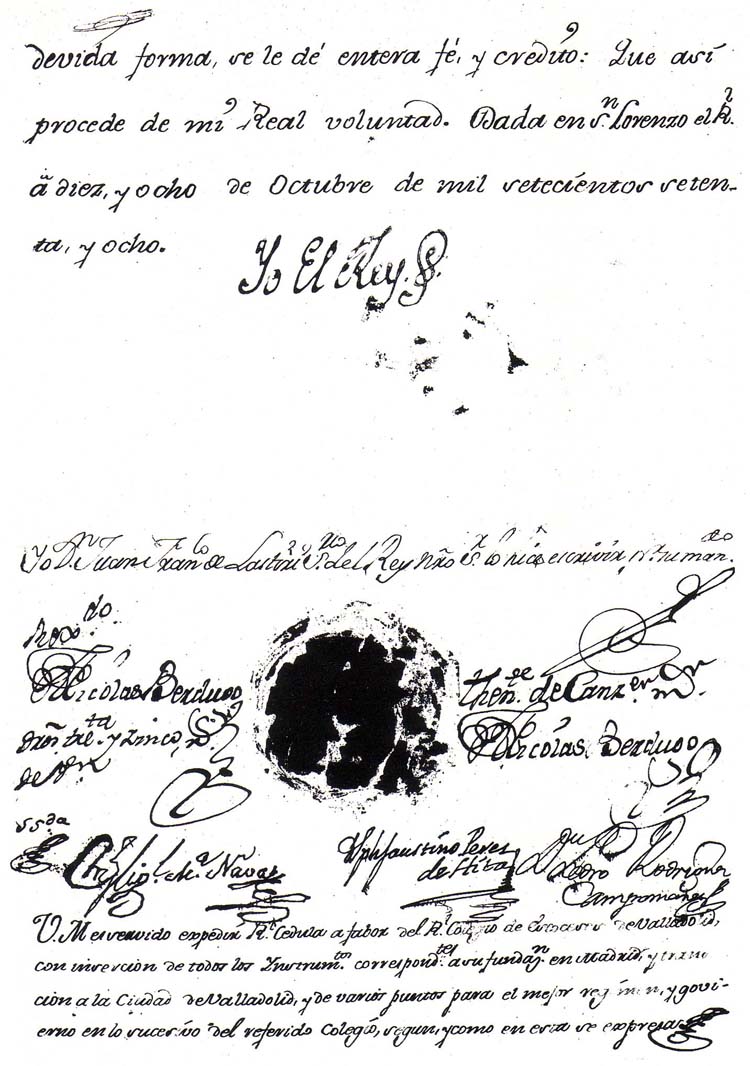 devida forma, se le dé entera fé, y credito: Que así
procede de mi Real voluntad. Dada en Sn. Lorenzo el Rl.
â diez, y ocho de Octubre de mil setecientos seten-
ta, y ocho.
Yo El Rey
Yo Dn. Juan Franco. de Lastiri Srio. del Rey nro Sr. lo hice escrivir pr. su mando.
Rexdo.
Nicolás Berdugo
Thente. de Canzer. mr.
Nicolás Berdugo
dros. trta. y zinco
Nava
Joph faustino Perez
de Hita
Pedro Rodriguez
Campomanes
V. M. es servido expedir Rl. Cedula a fabor del Rl. Colegio de Escoceses de Valladolid,
con insercion de todos los Instrumtos. correspondtes. a su fundazn. en Madrid, y trans
cion a la Ciudad de Valladolid, y de varios puntos para el mejor regimen, y govi-
erno en lo sucesivo del referido Colegio, segun, y como en esta se expresa